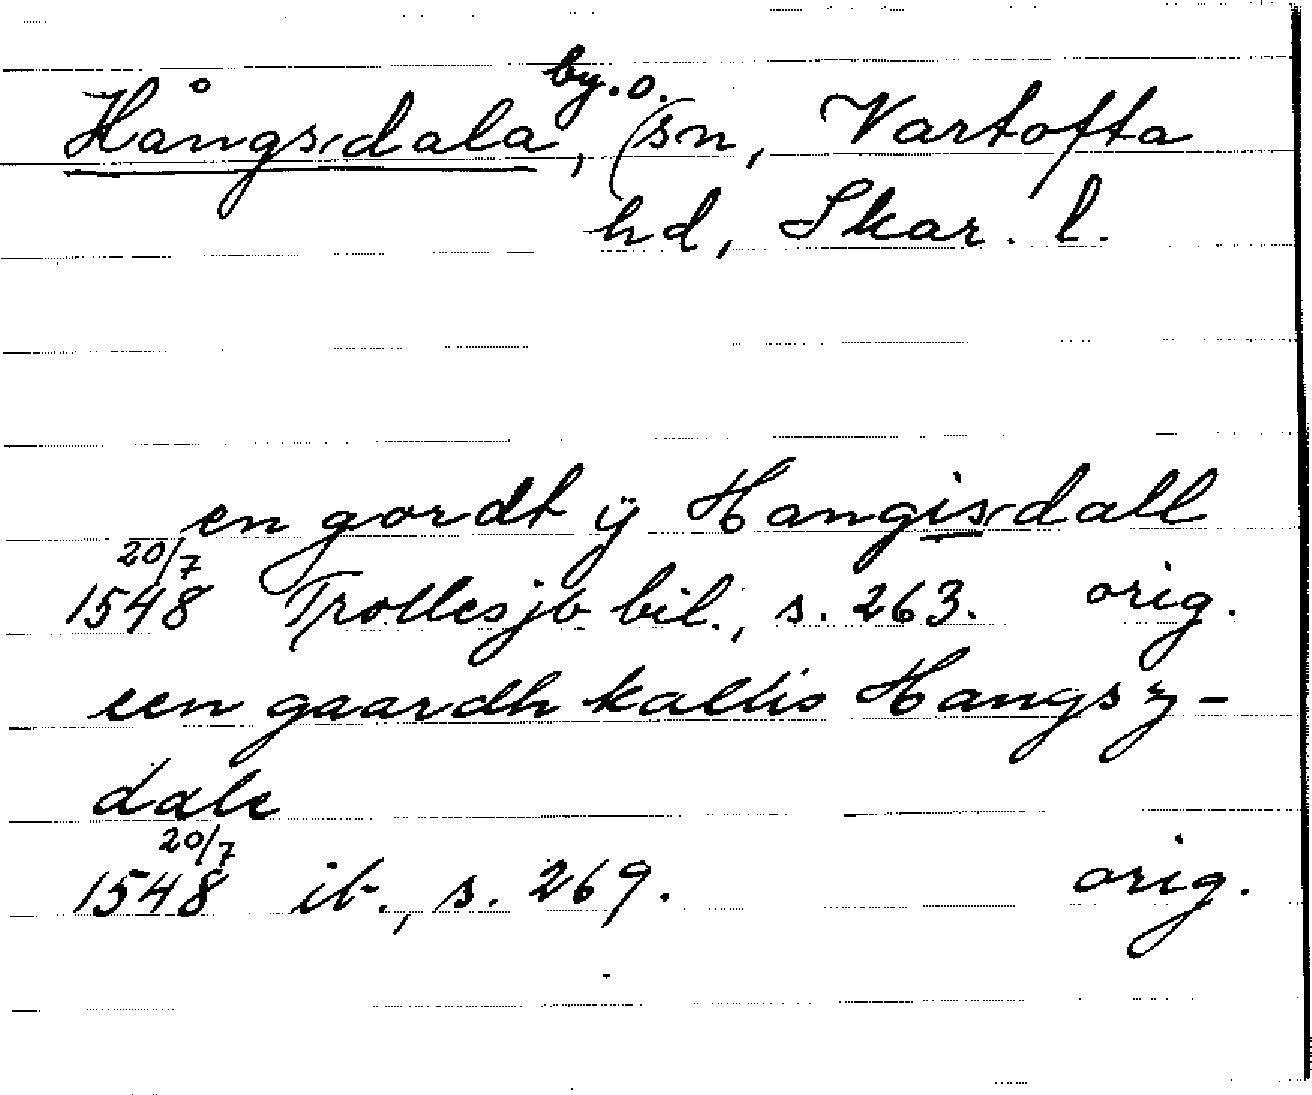 Hångsdala, by. o. (sn, Vartofta
hd, Skar. l.
en gordt ÿ Hangisdall
1548 20/7 Trollesjb bil., s. 263. orig.
een gaardh kallis Hangsz-
dale
1548 20/7 ib., s. 269. orig.